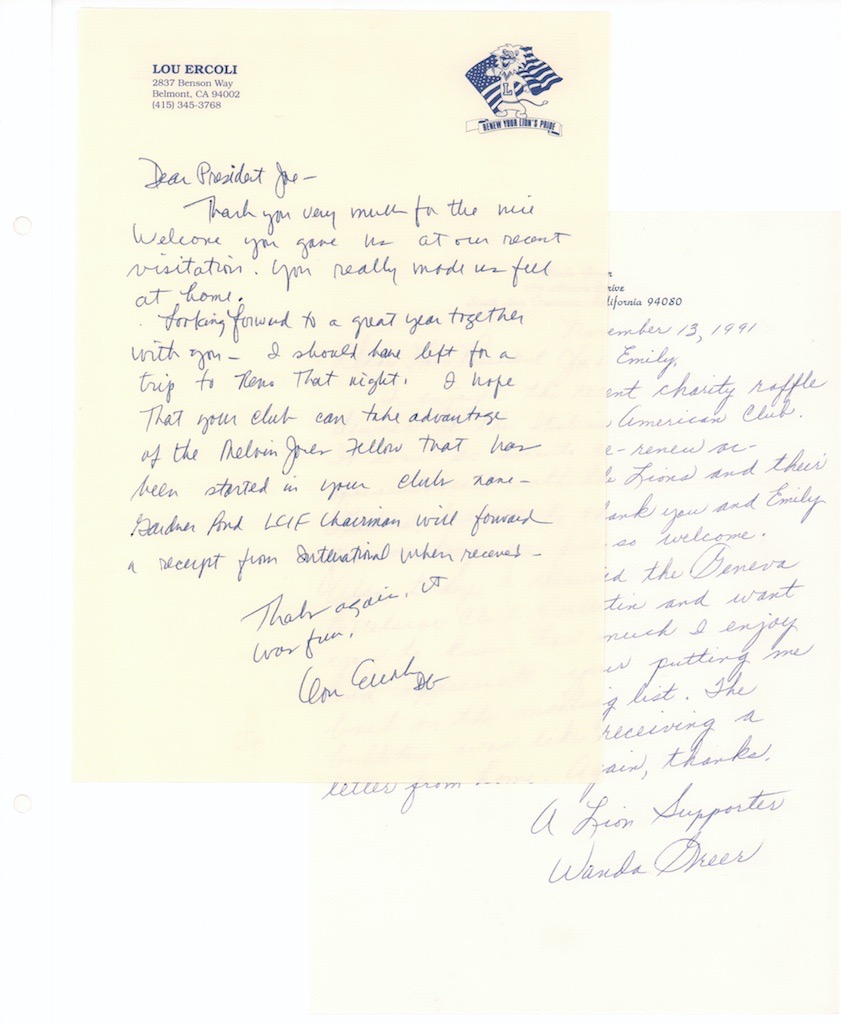 LOU ERCOLI
2837 Benson Way
Belmont, CA 94002
(415) 345-3768
L
RENEW YOUR LION'S PRIDE
Dear President Joe -
Thank you very much for the nice
Welcome you gave us at our recent
visitation. you really made us feel
at home.
Looking forward to a great year together
with you - I should have left for a
trip to Reno That night. I hope
That your club can take advantage
of the Melvin Jones Fellow that has
been started in your clubs name -
Gardner Pond LCIF Chairman will forward
a receipt from International when received -
Thanks again, it
was fun,
Lou Ercoli DG
rive
lifornia 94080
ember 13, 1991
Emily,
ent charity raffle
American Club.
e-renew ac-
Lions and their
ank you and Emily
so welcome.
the Geneva
tin and want
much I enjoy
putting me
g list. The
receiving a
letter from home Again, thanks.
A Lion Supporter
Wanda Greer